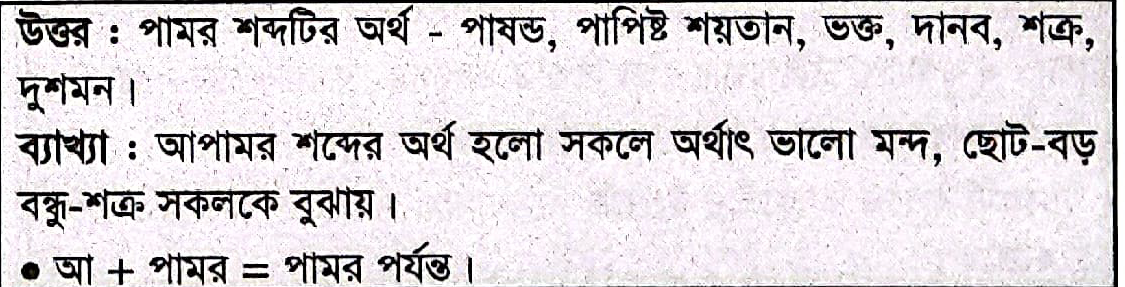 উত্তর : পামর শব্দটির অর্থ - পাষন্ড, পাপিষ্ট শয়তান, ভক্ত, দানব, শত্রু,
দুশমন।
ব্যাখ্যা : আপামর শব্দের অর্থ হলো সকলে অর্থাৎ ভালো মন্দ, ছোট-বড়
বন্ধু-শত্রু সকলকে বুঝায়।
● আ + পামর = পামর পর্যন্ত।